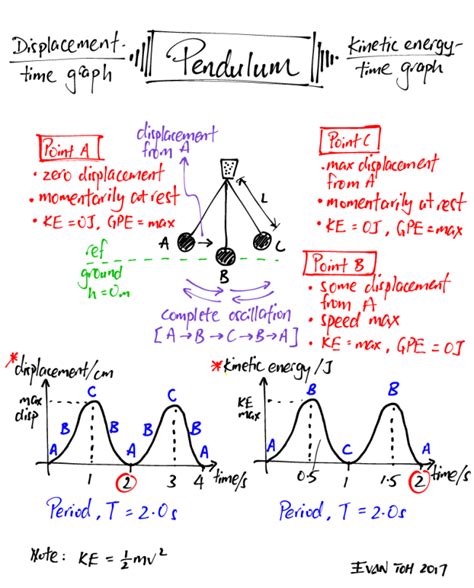 Displacement-
time graph
Pendulum
Kinetic energy-
time graph
displacement
from A
Point A
• zero displacement
• momentarily at rest
• KE = 0J, GPE = max
Point C
• max displacement
from A
• momentarily at rest
• KE = 0J, GPE = max
L
A
B
C
ref
ground
h = 0m
Point B
• some displacement
from A
• speed max
• KE = max, GPE = 0J
complete oscillation
[A→B→C→B→A]
* displacement/cm
max
disp
A B C B A B C B A
1 2 3 4 time/s
Period, T = 2.0s
* kinetic energy/J
KE
max
A B C B A
0.5 1 1.5 2 time/s
Period, T = 2.0s
Note: KE = ½mv²
EVAN TOH 2017